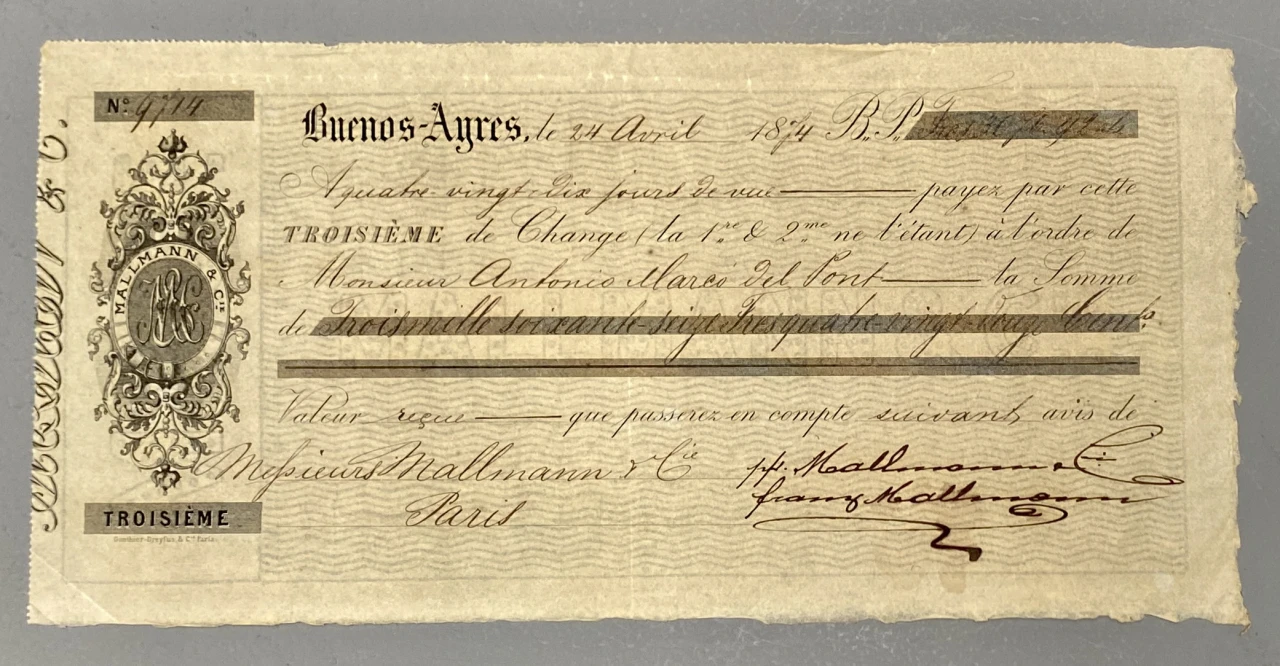 Nº 9714
Buenos-Ayres, le 24 Avril 1874 B.P. Frcs
A quatre-vingt-dix jours de vue payez par cette
TROISIÈME de Change (la 1re & 2me ne l'étant) à l'ordre de
Monsieur Antonio Marcó del Pont la Somme
de Troismille soixante-seize Frcs quatre-vingt-douze Cents
Valeur reçue que passerez en compte suivant avis de
Messieurs Mallmann & Cie
Paris
pp. Mallmann & Cie
Franz Mallmann
MALLMANN & CIE
TROISIÈME
Goethner-Dreyfus & Cie Paris